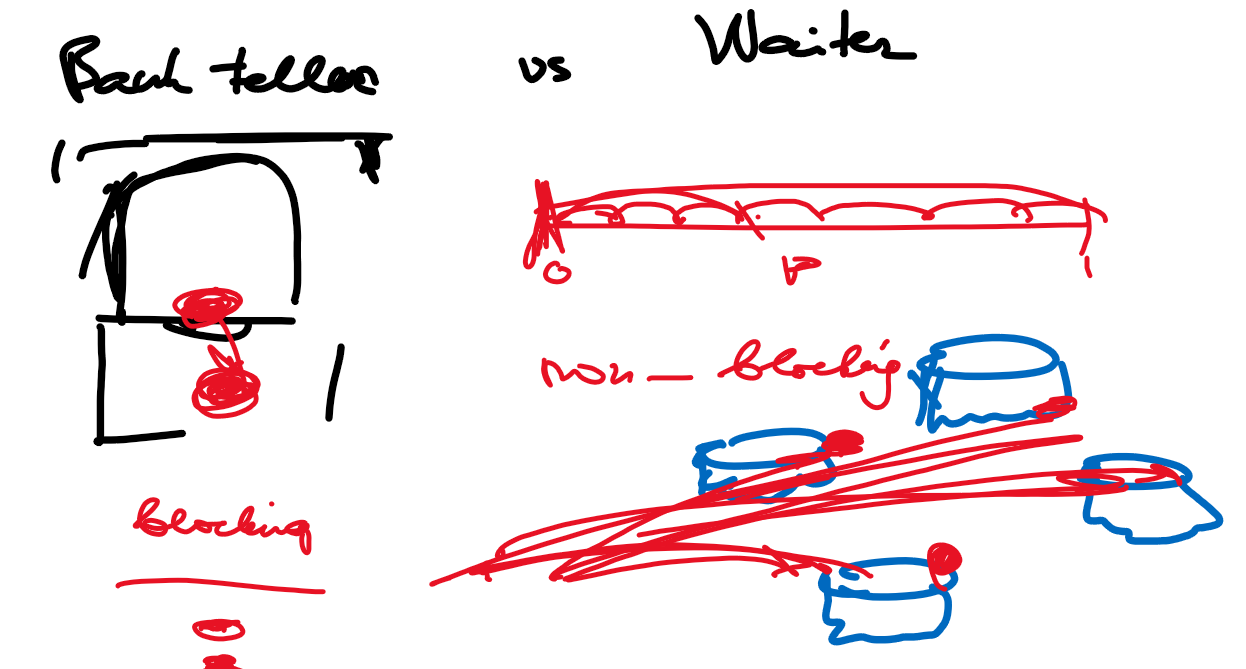 Bank teller vs Waiter
0 1
non - blocking
blocking